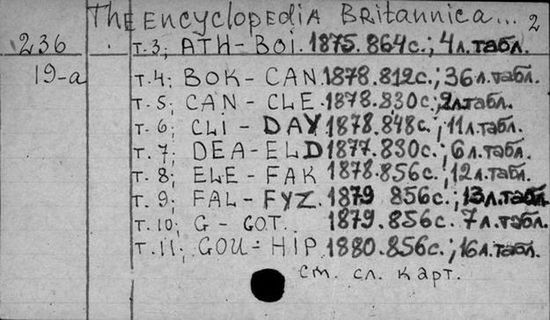 The Encyclopedia Britannica... 2
236 т.3; ATH-BOI. 1875. 864с.; 4л.табл.
19-а т.4; BOK-CAN. 1878. 812с.; 36л.табл.
т.5; CAN-CLE. 1878. 830с.; 9л.табл.
т.6; CLI-DAY 1878. 848с.; 11л.табл.
т.7; DEA-ELD 1877. 830с.; 6л.табл.
т.8; ELE-FAK 1878. 856с.; 12л.табл.
т.9; FAL-FYZ. 1879 856с.; 13л.табл.
т.10; G-GOT. 1879. 856с. 7л.табл.
т.11; GOU-HIP. 1880. 856с.; 16л.табл.
см. сл. карт.